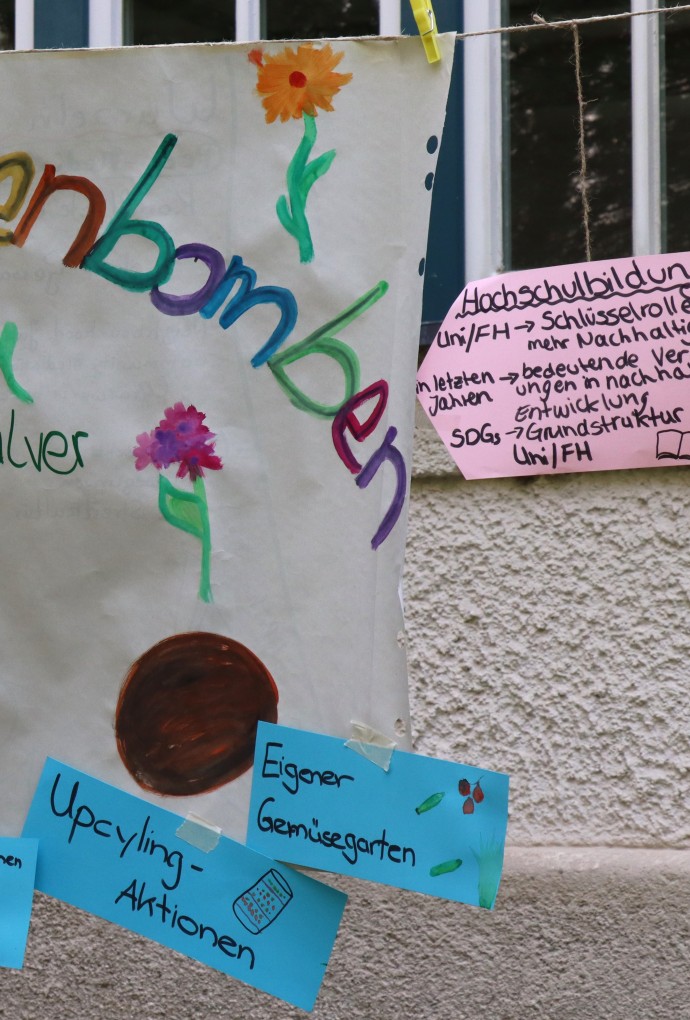 enbomben
ulver
Hochschulbildun
Uni/FH → Schlüsselrolle
mehr Nachhalti
in letzten → bedeutende Ver
Jahren ungen in nachha
Entwicklung
SDGs → Grundstruktur
Uni/FH
Eigener
Gemüsegarten
Upcyling-
Aktionen
nen